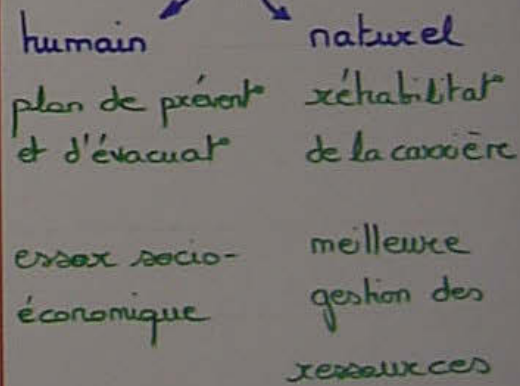 humain
plan de prévent°
et d'évacuat°
essor socio-
économique
naturel
réhabilitat°
de la carrière
meilleure
gestion des
ressources